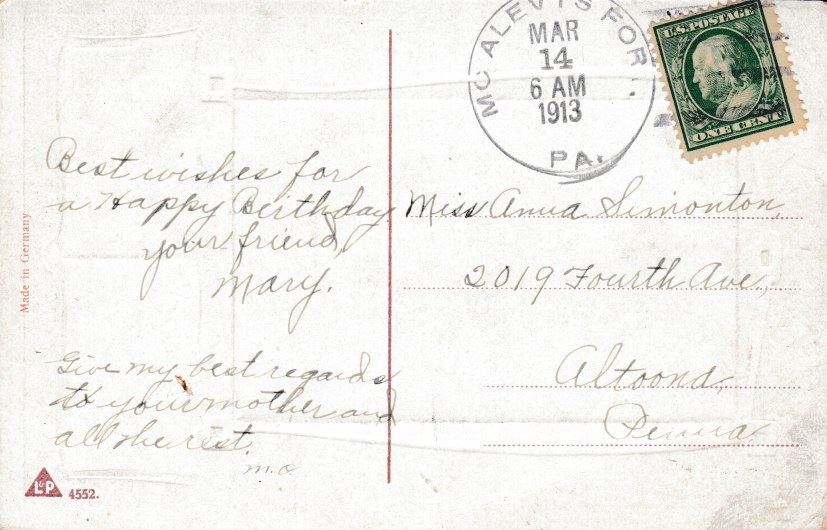 MC ALEVYS FORT.
MAR
14
6 AM
1913
PA.
U.S. POSTAGE
ONE CENT
Best wishes for
a Happy Birthday
your friend,
Mary.
Give my best regards
to your mother and
all the rest.
M.O.
Miss Anna Simonton,
2019 Fourth Ave,
Altoona,
Penna
Made in Germany
L&P
4552.